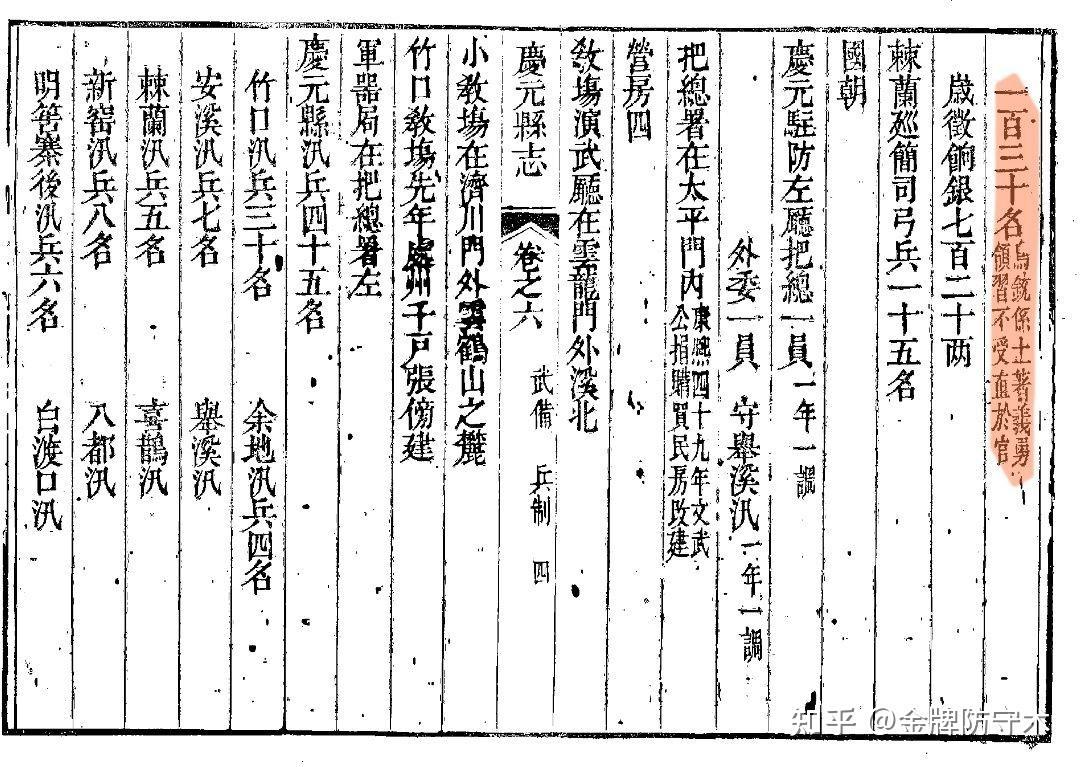 一百三十名鳥銃係土著義勇領習不受直於官
歲徵餉銀七百二十两
棘蘭廵簡司弓兵一十五名
國朝
慶元駐防左廳把總一員一年一調
外委一員 守舉溪汛一年一調
把總署在太平門內康熙四十九年文武公捐購買民房改建
營房四
敎塲演武廳在雲龍門外溪北
慶元縣志 卷之六 武備 兵制 四
小敎塲在濟川門外雲鶴山之麓
竹口敎塲先年處州千戶張傍建
軍器局在把總署左
慶元縣汛兵四十五名
竹口汛兵三十名 余地汛兵四名
安溪汛兵七名 舉溪汛
棘蘭汛兵五名 喜鵲汛
新窑汛兵八名 八都汛
明筶寨後汛兵六名 白渡口汛
知乎 @金牌防守木